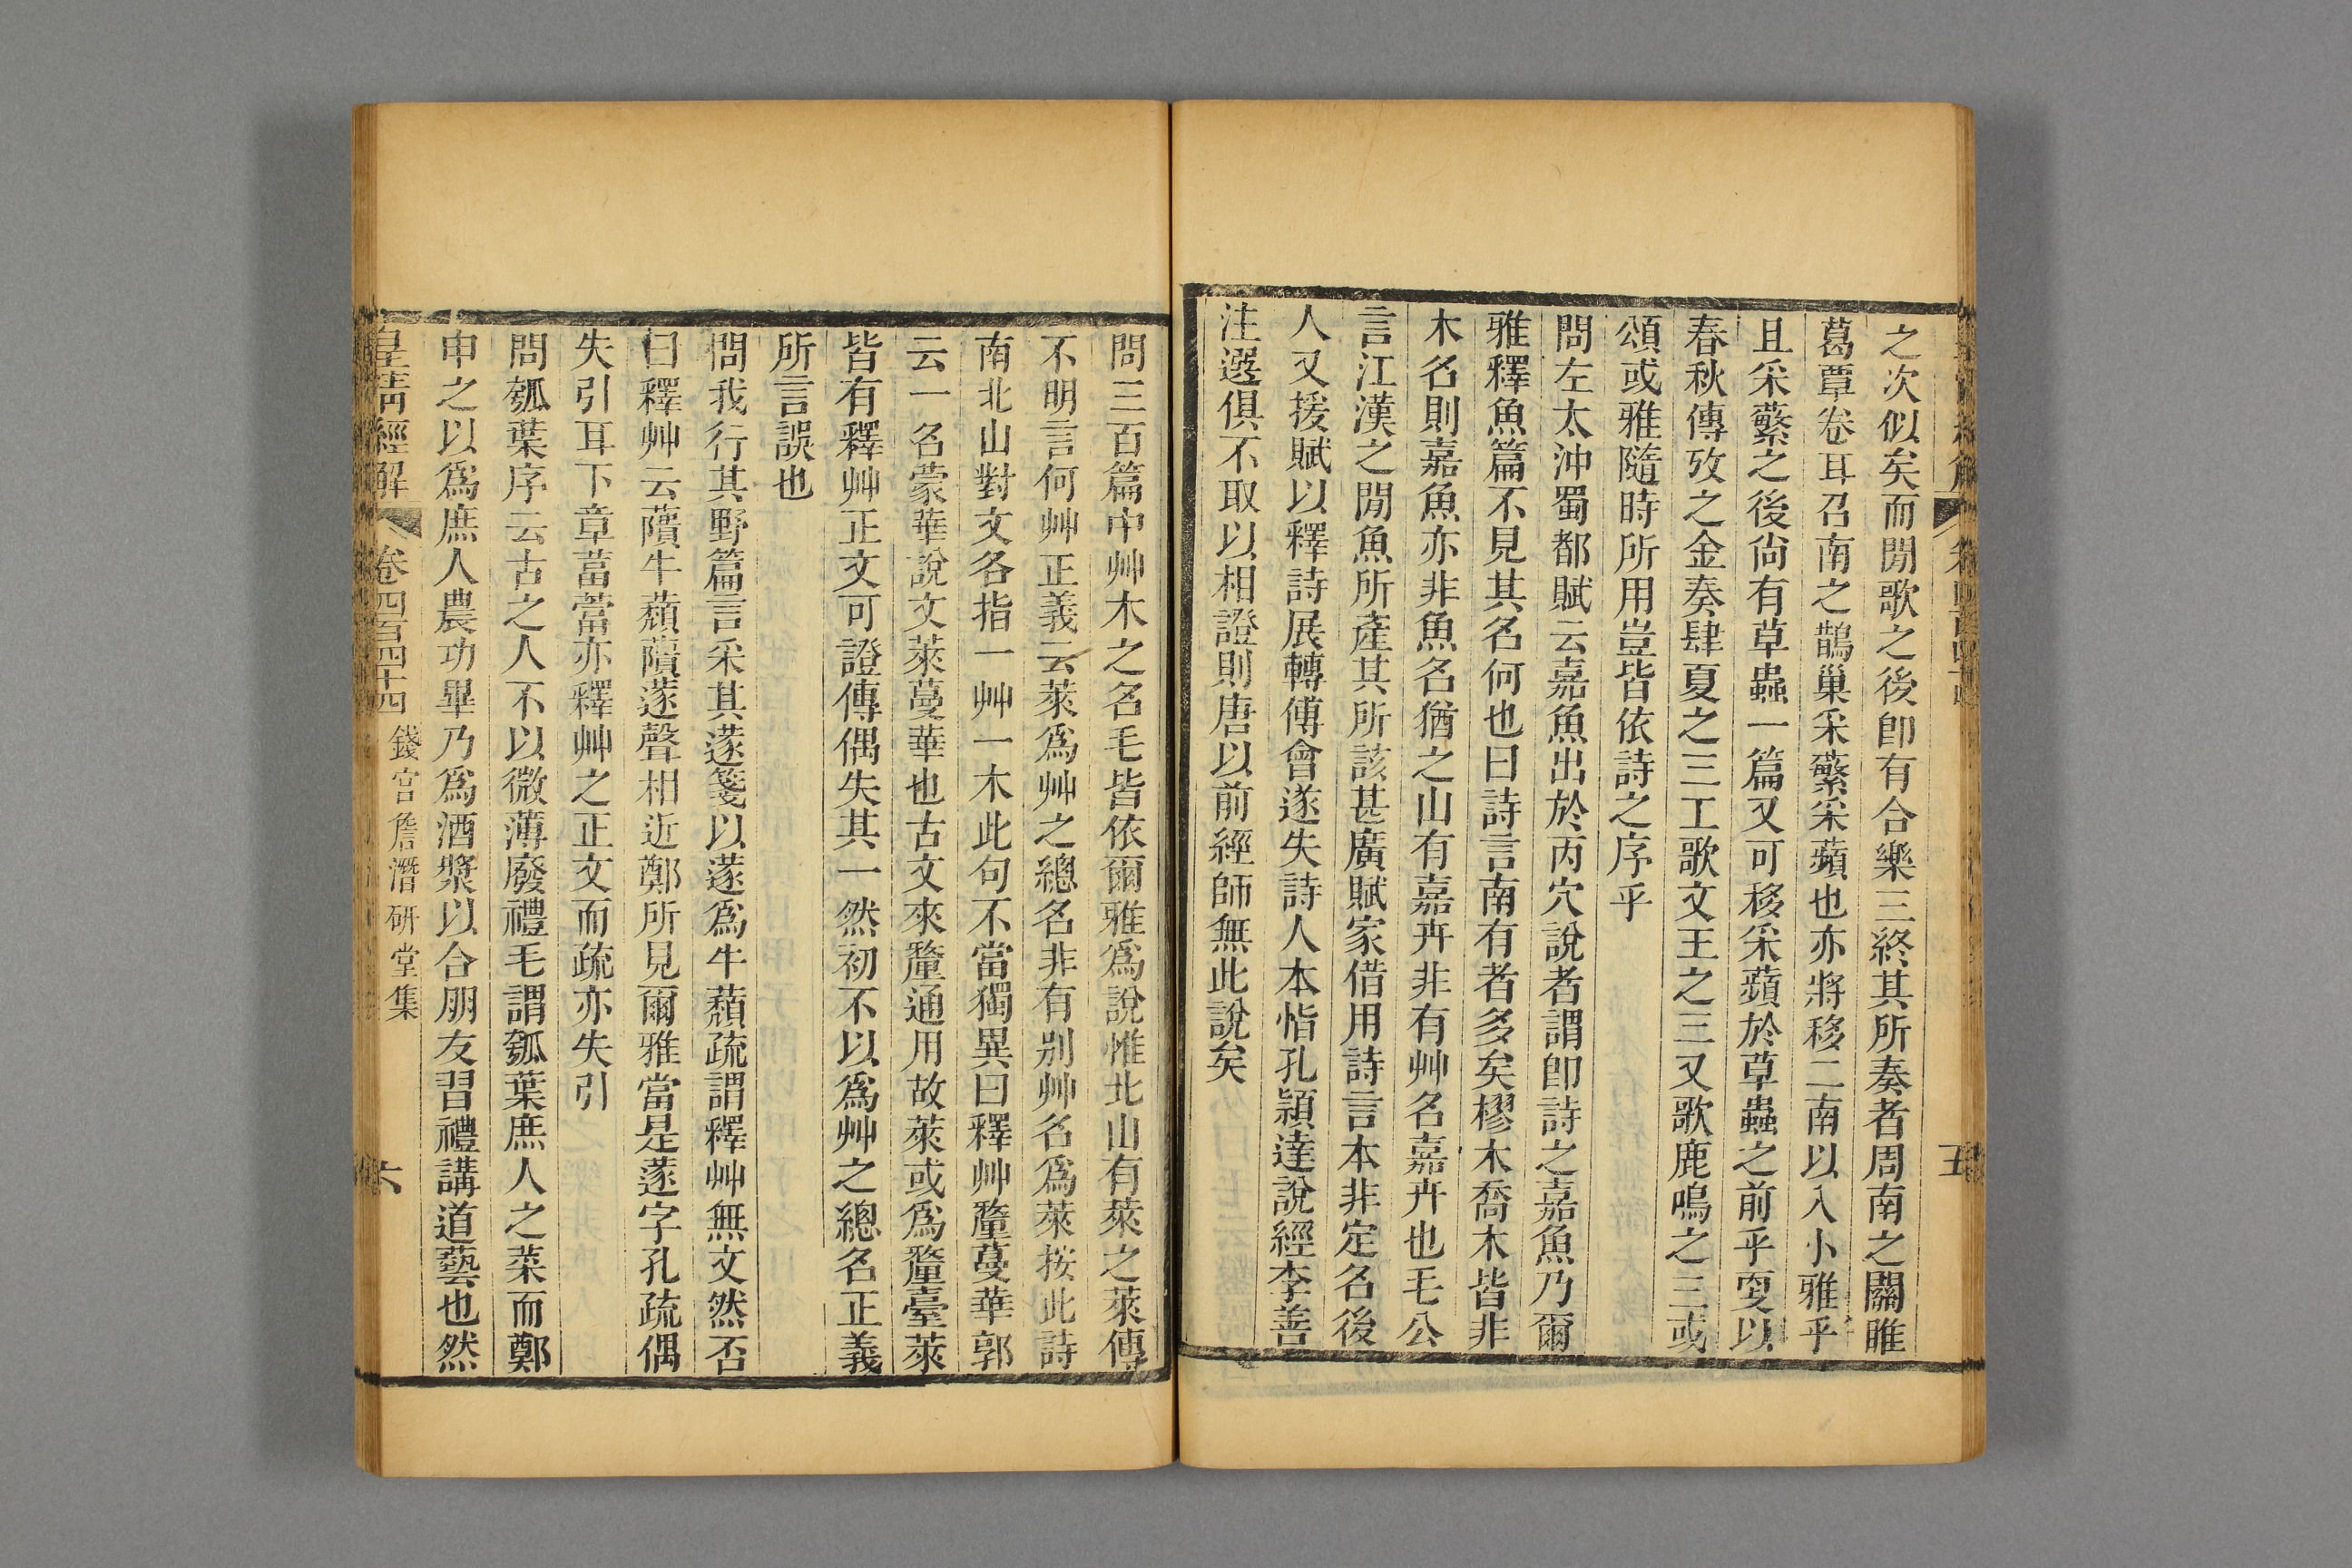 之次似矣而閒歌之後卽有合樂三終其所奏者周南之關雎
葛覃卷耳召南之鵲巢采蘩采蘋也亦將移二南以入小雅乎
且采蘩之後尙有草蟲一篇又可移采蘋於草蟲之前乎叓以
春秋傳攷之金奏肆夏之三工歌文王之三又歌鹿鳴之三或
頌或雅隨時所用豈皆依詩之序乎
問左太沖蜀都賦云嘉魚出於丙穴說者謂卽詩之嘉魚乃爾
雅釋魚篇不見其名何也曰詩言南有者多矣樛木喬木皆非
木名則嘉魚亦非魚名猶之山有嘉卉非有艸名嘉卉也毛公
言江漢之閒魚所產其所該甚廣賦家借用詩言本非定名後
人又援賦以釋詩展轉傅會遂失詩人本恉孔穎達說經李善
注選俱不取以相證則唐以前經師無此說矣
五
問三百篇中艸木之名毛皆依爾雅爲說惟北山有萊之萊傳
不明言何艸正義云萊爲艸之總名非有别艸名爲萊按此詩
南北山對文各指一艸一木此句不當獨異曰釋艸釐蔓華郭
云一名蒙華說文萊蔓華也古文來釐通用故萊或爲釐臺萊
皆有釋艸正文可證傳偶失其一然初不以爲艸之總名正義
所言誤也
問我行其野篇言采其蓫箋以蓫爲牛蘈疏謂釋艸無文然否
曰釋艸云藬牛蘈藬蓫聲相近鄭所見爾雅當是蓫字孔疏偶
失引耳下章葍䔰亦釋艸之正文而疏亦失引
問瓠葉序云古之人不以微薄廢禮毛謂瓠葉庶人之菜而鄭
申之以爲庶人農功畢乃爲酒漿以合朋友習禮講道藝也然
皇淸經解 卷四百四十四 錢宮詹潛研堂集 六